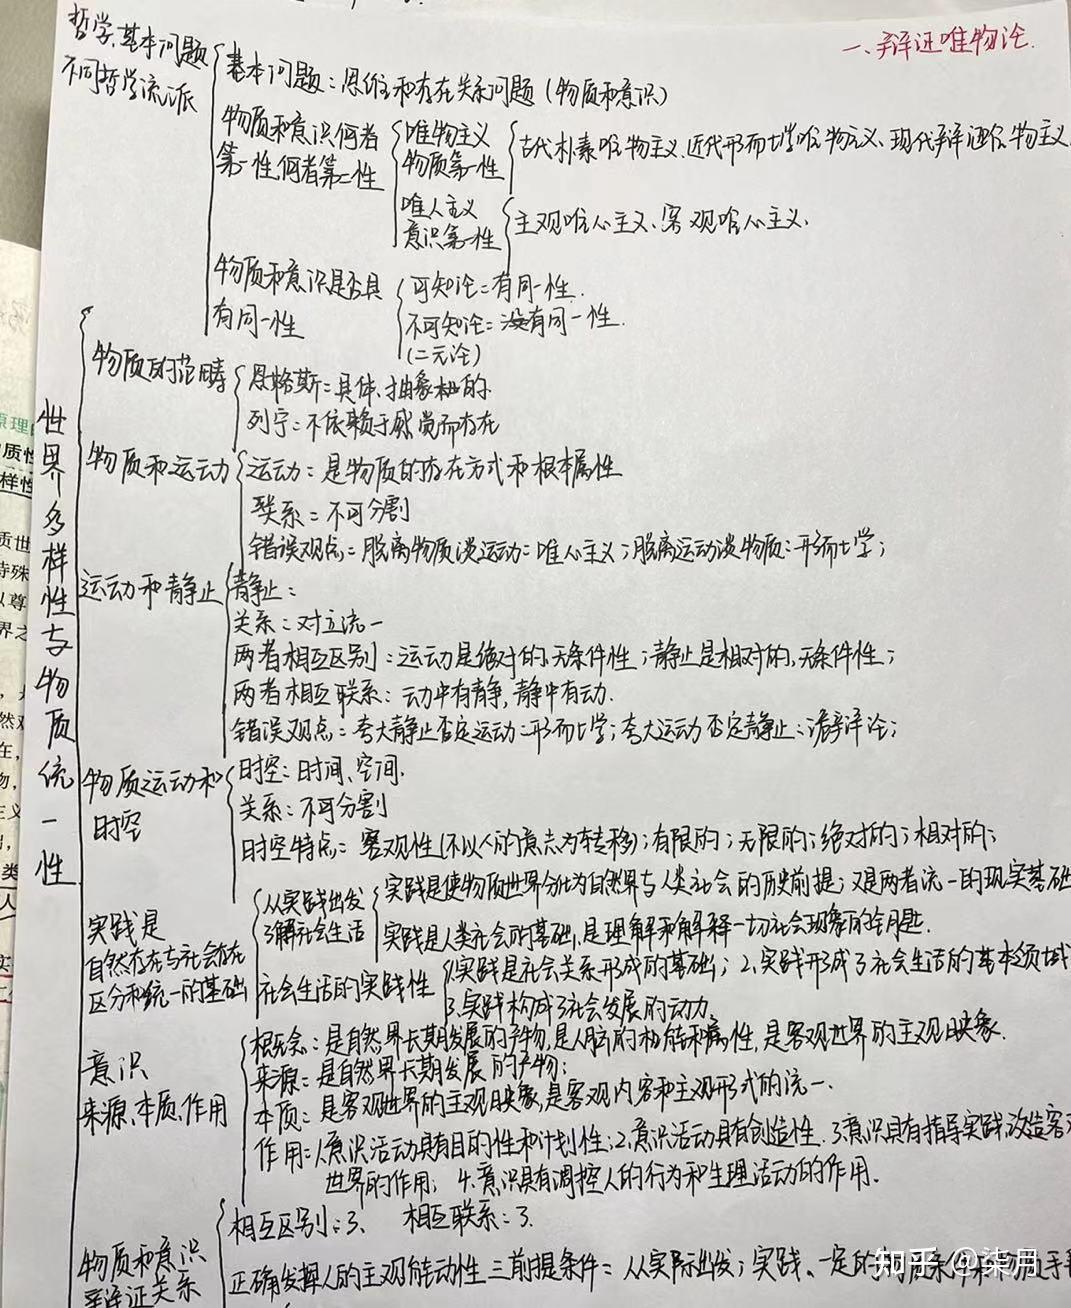 一、辩证唯物论.
哲学基本问题
不同哲学流派
基本问题：思维和存在关系问题（物质和意识）
物质和意识何者
第一性,何者第二性
唯物主义
物质第一性
古代朴素唯物主义、近代形而上学唯物主义、现代辩证唯物主义
唯人主义
意识第一性
主观唯心主义、客观唯心主义.
物质和意识是否具
有同一性
可知论：有同一性.
不可知论：没有同一性.
（二元论）
世界多样性与物质统一性
物质的范畴
恩格斯：具体、抽象的
列宁：不依赖于感觉而存在
物质和运动
运动：是物质的存在方式和根本属性
联系：不可分割
错误观点：脱离物质谈运动：唯人主义；脱离运动谈物质：形而上学；
运动和静止
静止：
关系：对立统一
两者相互区别：运动是绝对的、无条件性；静止是相对的、无条件性；
两者相互联系：动中有静,静中有动.
错误观点：夸大静止否定运动：形而上学；夸大运动否定静止：诡辩论；
物质运动和
时空
时空：时间、空间.
关系：不可分割
时空特点：客观性（不以人的意志为转移）；有限的；无限的；绝对的；相对的；
实践是
自然存在与社会存在
区分和统一的基础
从实践出发
了解社会生活
实践是使物质世界分化为自然界与人类社会的历史前提；又是两者统一的现实基础
实践是人类社会的基础,是理解和解释一切社会现象的钥匙.
社会生活的实践性
1.实践是社会关系形成的基础；2.实践形成了社会生活的基本领域
3.实践构成了社会发展的动力.
意识
来源、本质、作用
概念：是自然界长期发展的产物,是人脑的机能和属性,是客观世界的主观映象.
来源：是自然界长期发展的产物；
本质：是客观世界的主观映象,是客观内容和主观形式的统一.
作用：1.意识活动具有目的性和计划性；2.意识活动具有创造性.3.意识具有指导实践,改造客观
世界的作用； 4.意识具有调控人的行为和生理活动的作用.
物质和意识
辩证关系
相互区别：3、 相互联系：3.
正确发挥人的主观能动性 三前提条件：从实际出发；实践、一定的
知乎 @柒月